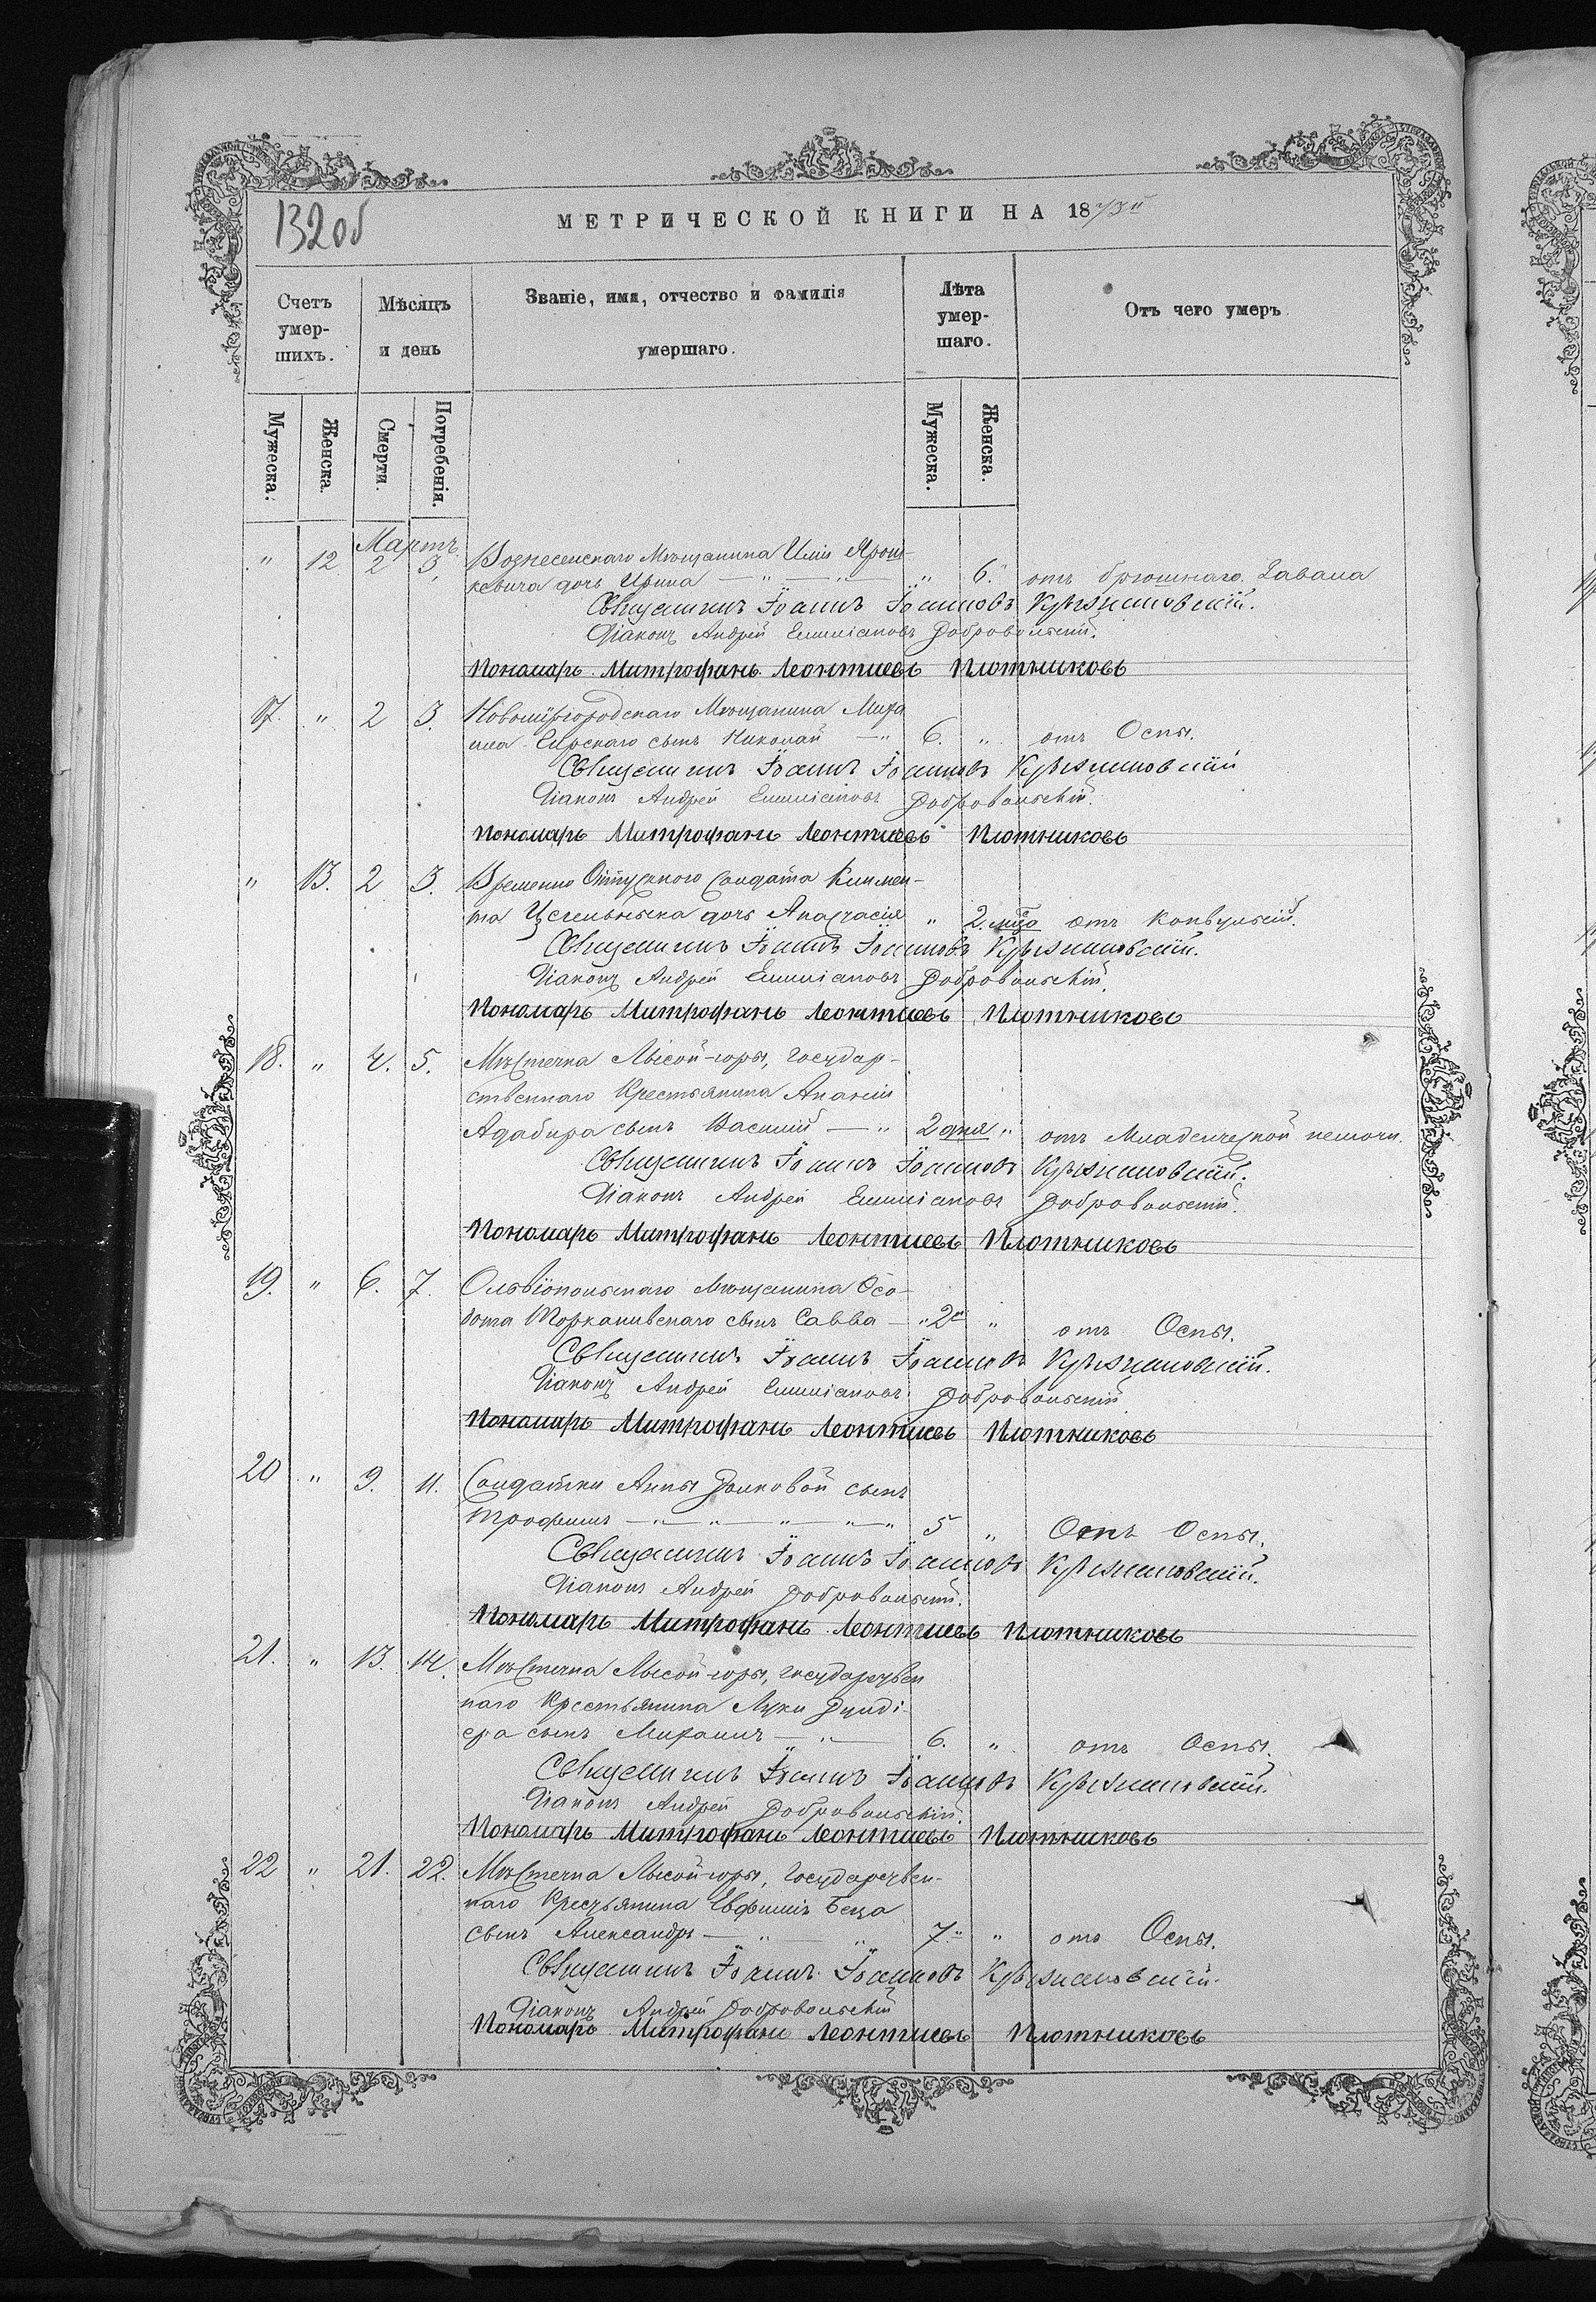 132об
МЕТРИЧЕСКОЙ КНИГИ НА 1873й
Счетъ умершихъ.
Мѣсяцъ и день
Званіе, имя, отчество и фамилія умершаго.
Лѣта умершаго.
Отъ чего умеръ
Мужеска.
Женска.
Смерти.
Погребенія.
Мужеска.
Женска.
Мартъ.
" 12 2 3 Вознесенскаго Мѣщанина Иліи Ярош-
кевича дочь Ирина — " — " " 6. отъ брюшнаго Завала
Священникъ Іоаннъ Іоанновъ Крыжановскій.
Діаконъ Андрей Емиліановъ Добровольскій.
Пономарь Митрофанъ Леонтиевъ Плотниковъ
17. " 2 3. Новомиргородскаго Мѣщанина Миха
ила сынъ Николай — " 6. " отъ Оспы.
Священникъ Іоаннъ Іоанновъ Крыжановскій
Діаконъ Андрей Емиліановъ Добровольскій.
Пономарь Митрофанъ Леонтиевъ Плотниковъ
" 13. 2 3. Временно Отпускного Солдата Климен-
та дочь Анастасія " 2. мца отъ Конвульсій.
Священникъ Іоаннъ Іоанновъ Крыжановскій.
Діаконъ Андрей Емиліановъ Добровольскій.
Пономарь Митрофанъ Леонтиевъ Плотниковъ
18. " 4. 5. Мѣстечка Лысой-горы, государ-
ственнаго Крестьянина Ананіи
Адабира сынъ Василій — " 2 дня " отъ Младенческой немочи.
Священникъ Іоаннъ Іоанновъ Крыжановскій.
Діаконъ Андрей Емиліановъ Добровольскій.
Пономарь Митрофанъ Леонтиевъ Плотниковъ
19. " 6. 7. Ольвіопольскаго Мѣщанина Ѳео-
дота сынъ Савва — " 2" " отъ Оспы.
Священникъ Іоаннъ Іоанновъ Крыжановскій.
Діаконъ Андрей Емиліановъ Добровольскій
Пономарь Митрофанъ Леонтиевъ Плотниковъ
20 " 9. 11. Солдатки Анны Волковой сынъ
Трофимъ — " — " — " — " " 5 " Отъ Оспы.
Священникъ Іоаннъ Іоанновъ Крыжановскій.
Діаконъ Андрей Добровольскій.
Пономарь Митрофанъ Леонтиевъ Плотниковъ
21. " 13. 14. Мѣстечка Лысой-горы, государствен
наго Крестьянина Луки Дунді-
ера сынъ Михаилъ — " — 6. " отъ Оспы.
Священникъ Іоаннъ Іоанновъ Крыжановскій.
Діаконъ Андрей Добровольскій.
Пономарь Митрофанъ Леонтиевъ Плотниковъ
22 " 21. 22. Мѣстечка Лысой-горы, Государствен-
наго Крестьянина Евфимія Беца
сынъ Александръ — " — " 7." " отъ Оспы.
Священникъ Іоаннъ Іоанновъ Крыжановскій.
Діаконъ Андрей Добровольскій
Пономарь Митрофанъ Леонтиевъ Плотниковъ